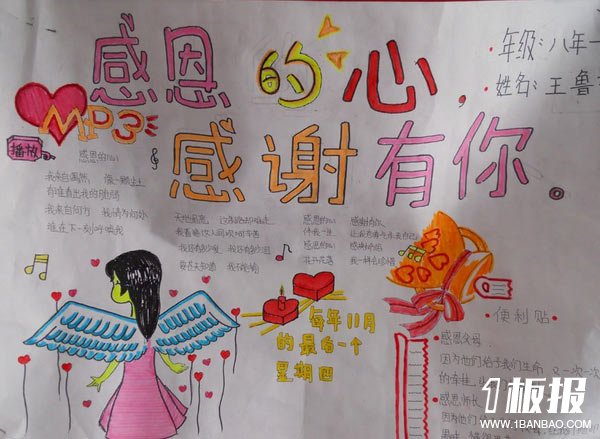 感恩的心,
感谢有你。
·年级:八年一
·姓名:王鲁
MP3
播放
感恩的心
我来自偶然 像一颗尘土
有谁看出我的脆弱
我来自何方 我情归何处
谁在下一刻呼唤我
天地虽宽 这条路却难走
我看遍人间坎坷辛苦
我还有多少爱 我还有多少泪
要苍天知道 我不认输
感恩的心 感谢有你
伴我一生 让我有勇气作我自己
感恩的心 感谢命运
花开花落 我一样会珍惜
每年11月
的最后一个
星期四
·便利贴
·感恩父母
因为他们给予我们生命 又一次一次
的牵挂
·感恩师长
因为他们给
1板报
WWW.1BANBAO.COM